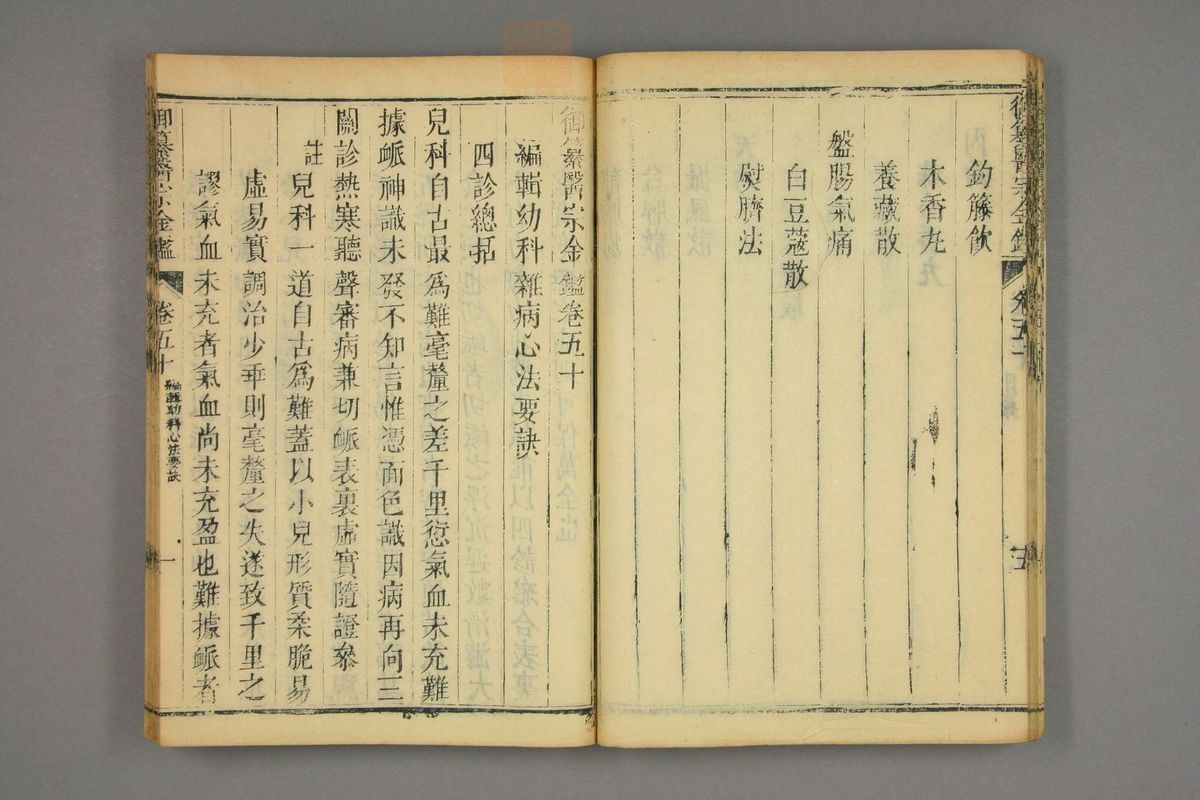 御纂醫宗金鑑
卷五十
五
鈞籐飲
木香丸
養藏散
盤腸氣痛
白豆蔻散
熨臍法
御纂醫宗金鑑卷五十
編輯幼科雜病心法要訣
四診總括
兒科自古最爲難毫釐之差千里愆氣血未充難
據脈神識未發不知言惟憑面色識因病再向三
關診熱寒聽聲審病兼切脈表裏虛實隨證參
註
兒科一道自古爲難蓋以小兒形質柔脆易
虛易實調治少乖則毫釐之失遂致千里之
謬氣血未充者氣血尚未充盈也難據脈者
御纂醫宗金鑑
卷五十
編輯幼科心法要訣
一